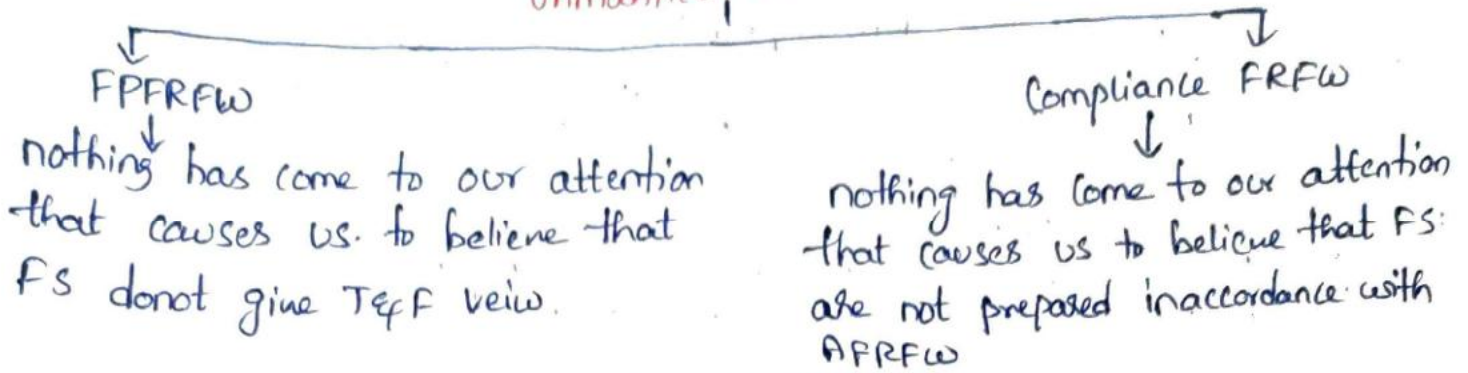 FPFRFW
nothing has come to our attention
that causes us. to believe that
FS donot give T&F veiw.
Compliance FRFW
nothing has come to our attention
that causes us to believe that FS:
are not prepared inaccordance with
AFRFW